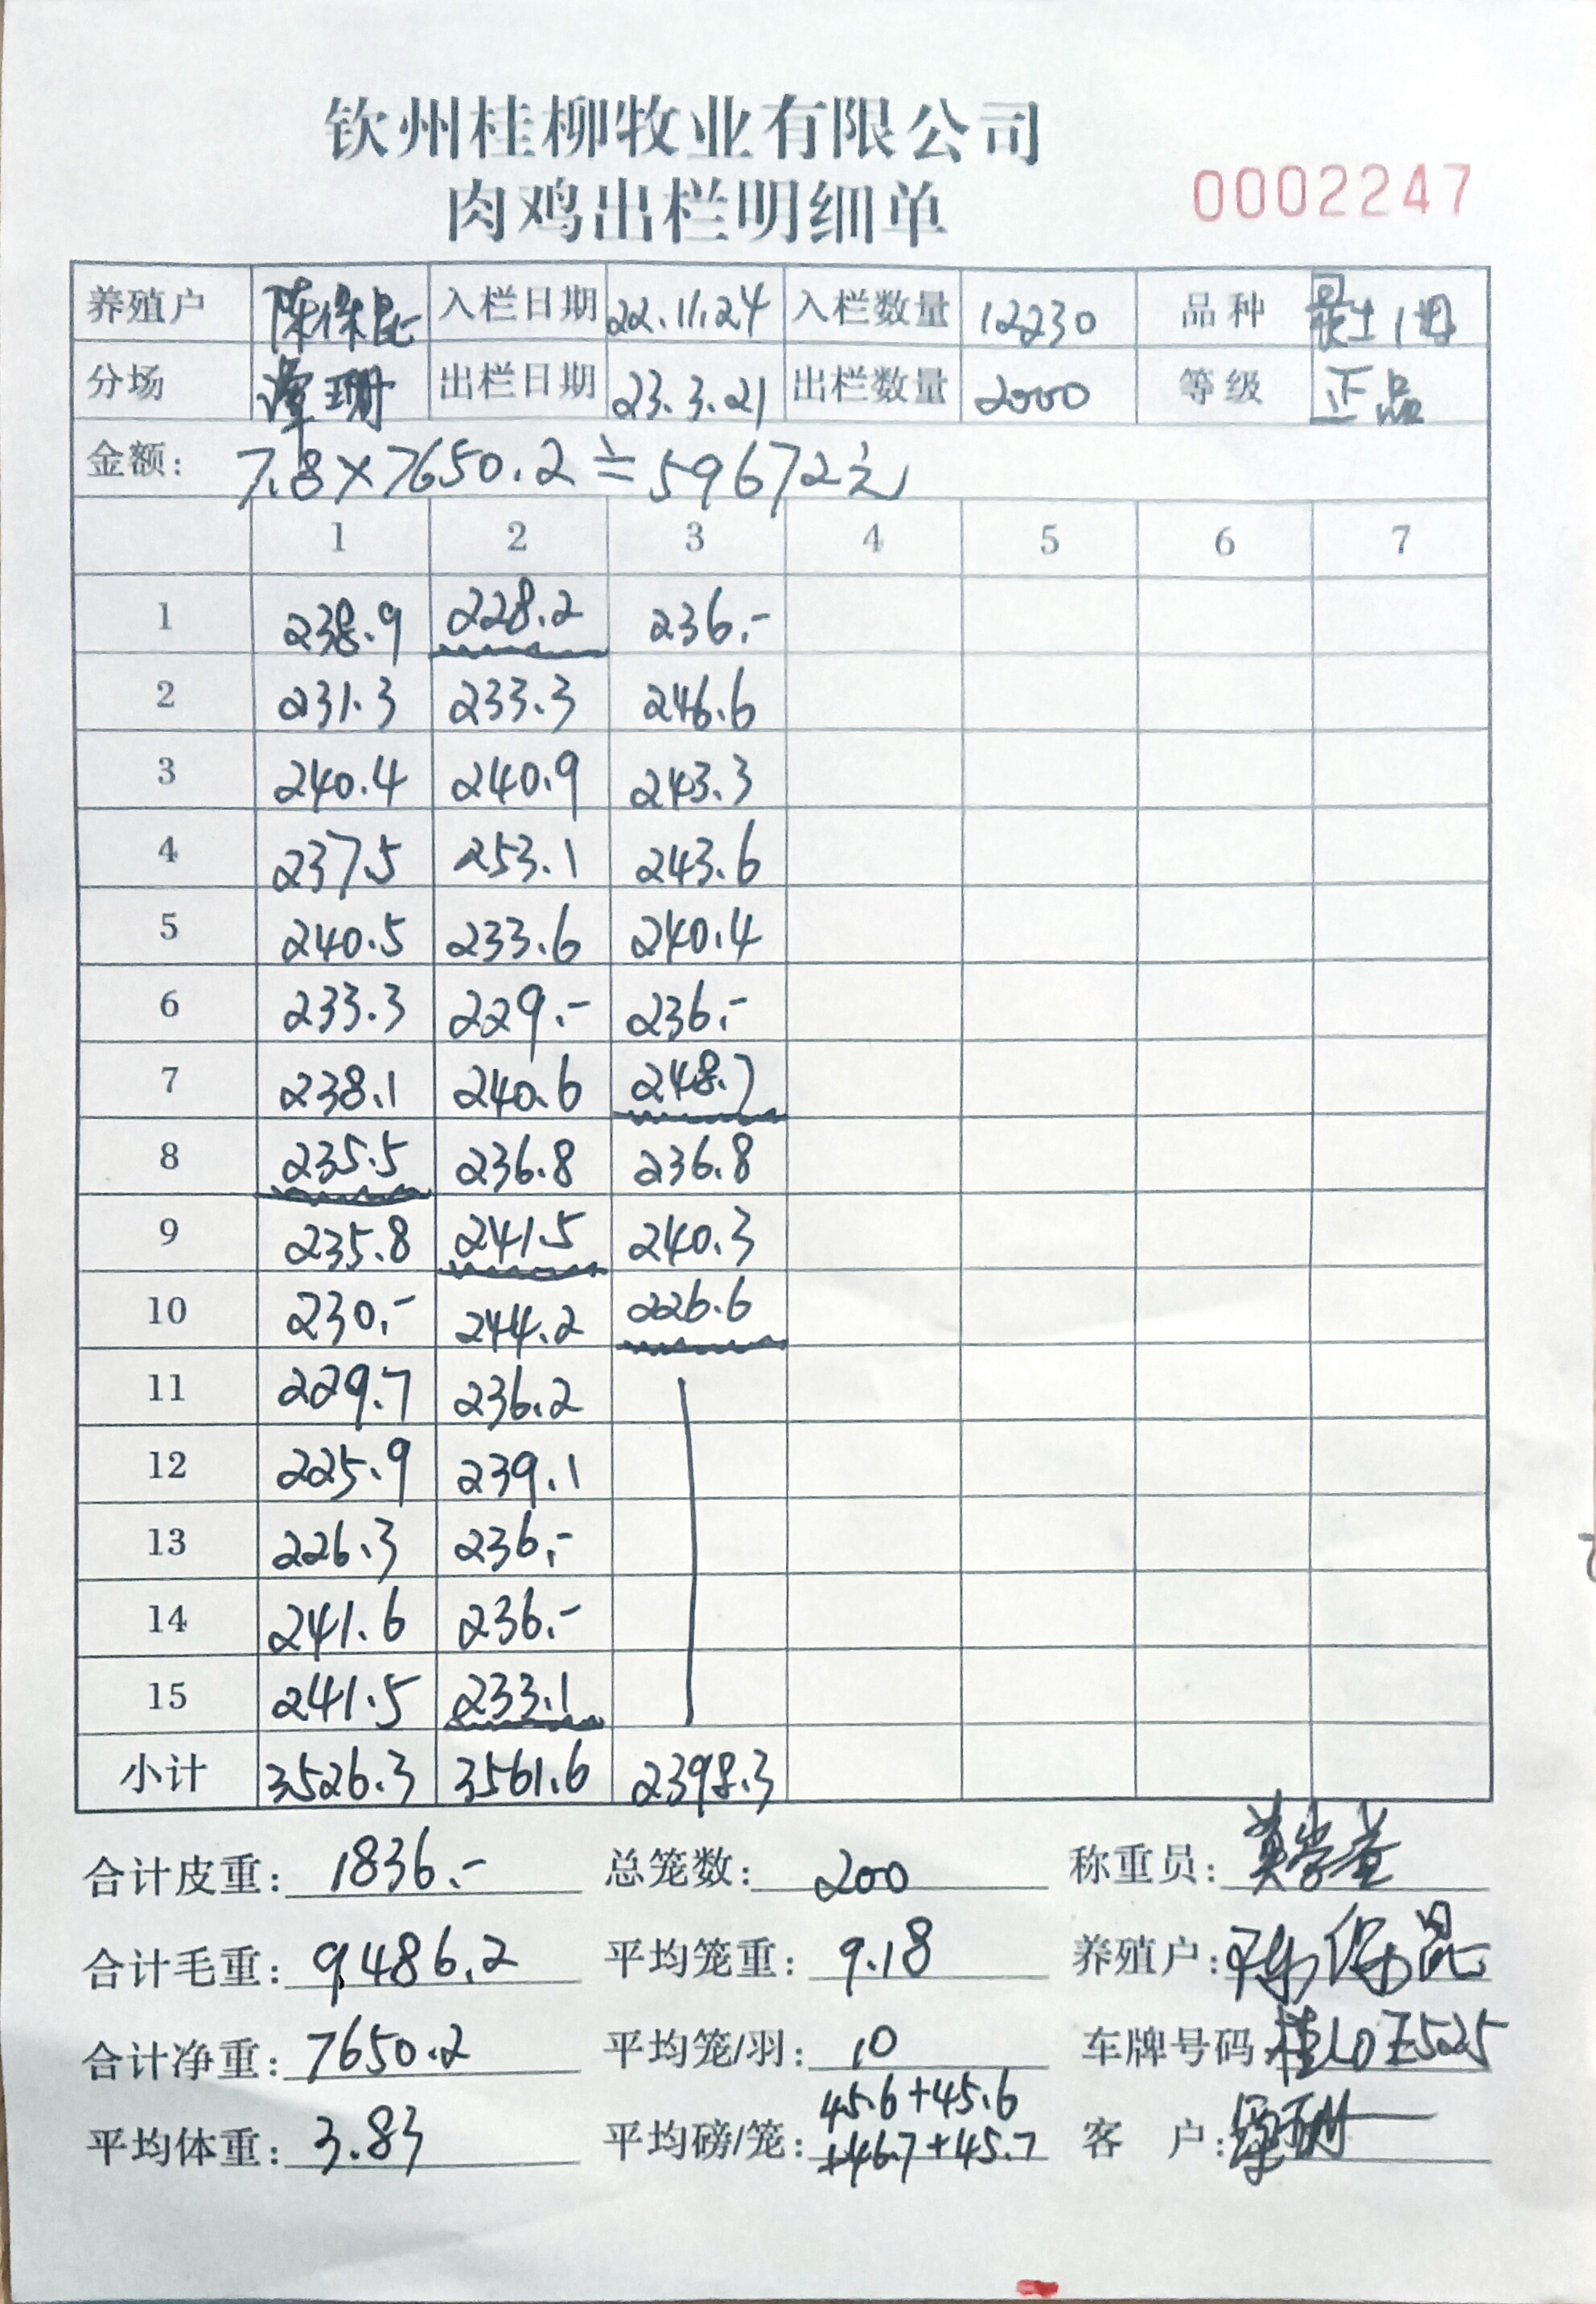 钦州桂柳牧业有限公司
肉鸡出栏明细单
0002247
养殖户 陈保昆 入栏日期 22.11.24 入栏数量 12230 品种
分场 谭珊 出栏日期 23.3.21 出栏数量 2000 等级 正品
金额: 7.8×7650.2≐59672元
1 2 3 4 5 6 7
1 238.9 228.2 236.-
2 231.3 233.3 246.6
3 240.4 240.9 243.3
4 237.5 253.1 243.6
5 240.5 233.6 240.4
6 233.3 229.- 236.-
7 238.1 240.6 248.7
8 235.5 236.8 236.8
9 235.8 241.5 240.3
10 230.- 244.2 226.6
11 229.7 236.2
12 225.9 239.1
13 226.3 236.-
14 241.6 236.-
15 241.5 233.1
小计 3526.3 3561.6 2398.3
合计皮重: 1836.- 总笼数: 200 称重员:
合计毛重: 9486.2 平均笼重: 9.18 养殖户: 陈保昆
合计净重: 7650.2 平均笼/羽: 10 车牌号码: 桂L0Z525
45.6+45.6
平均体重: 3.83 平均磅/笼: +46.7+45.7 客 户: 谭珊